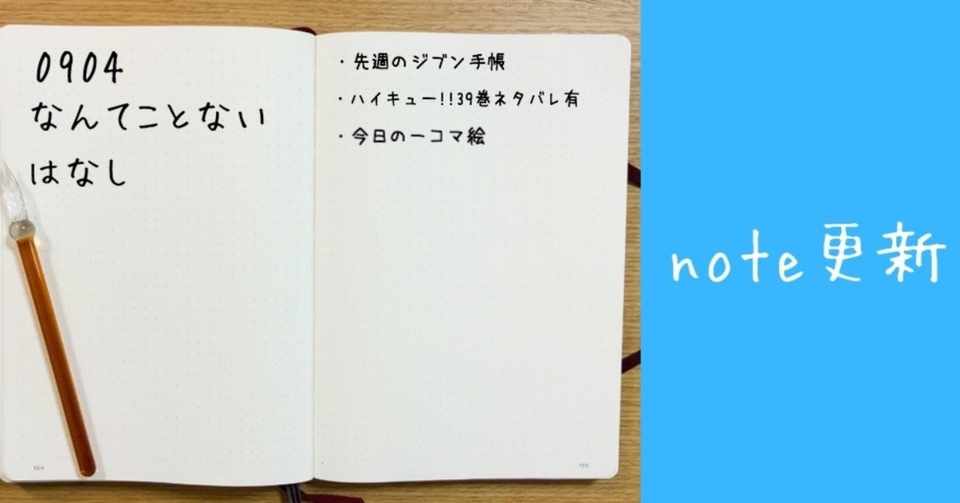 0904
なんてことない
はなし
・先週のジブン手帳
・ハイキュー!!39巻ネタバレ有
・今日の一コマ絵
note更新